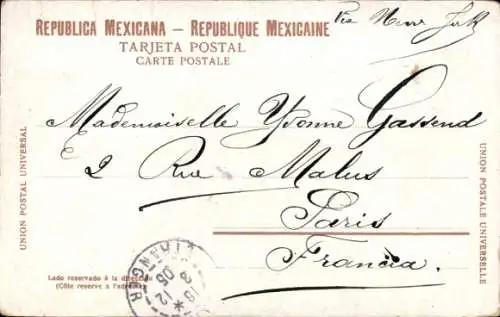 REPUBLICA MEXICANA — REPUBLIQUE MEXICAINE
Via New York
TARJETA POSTAL
CARTE POSTALE
Mademoiselle Yvonne Gassend
2 Rue Malus
Paris
Francia.
UNION POSTAL UNIVERSAL
UNION POSTALE UNIVERSELLE
Lado reservado á la direccion
(Côte reservé a l'adresse)
ETRANGER